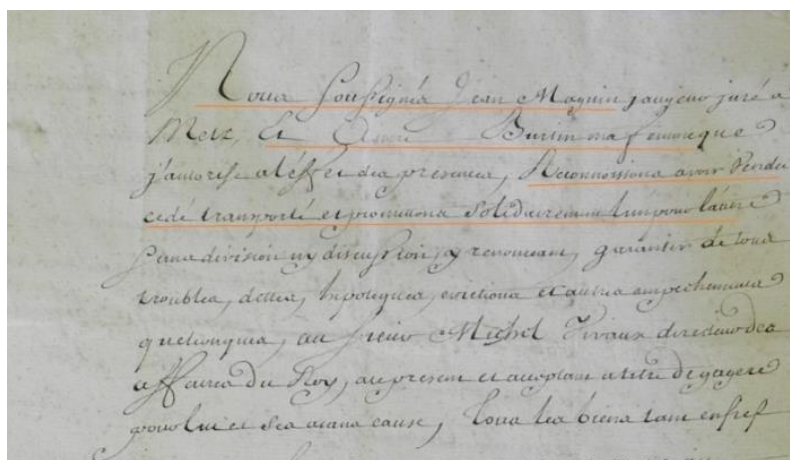 Nous soussignés Jean Magnin jaugeur juré a
Metz, Et Burtin ma femme que
j'autorise a l'effet des presentes, Reconnoissons avoir Vendu
cedé transporté et promettons solidairement l'un pour l'autre
sans division ny discussion, y renonceant, garantir de tous
troubles, dettes, hipoteques, evictions et autres empechements
quelconques, au sieur Michel Vivaux directeur des
affaires du Roy, ace present et acceptant a titre de gagere
pour lui et ses ayans cause, tous les biens tant en fief